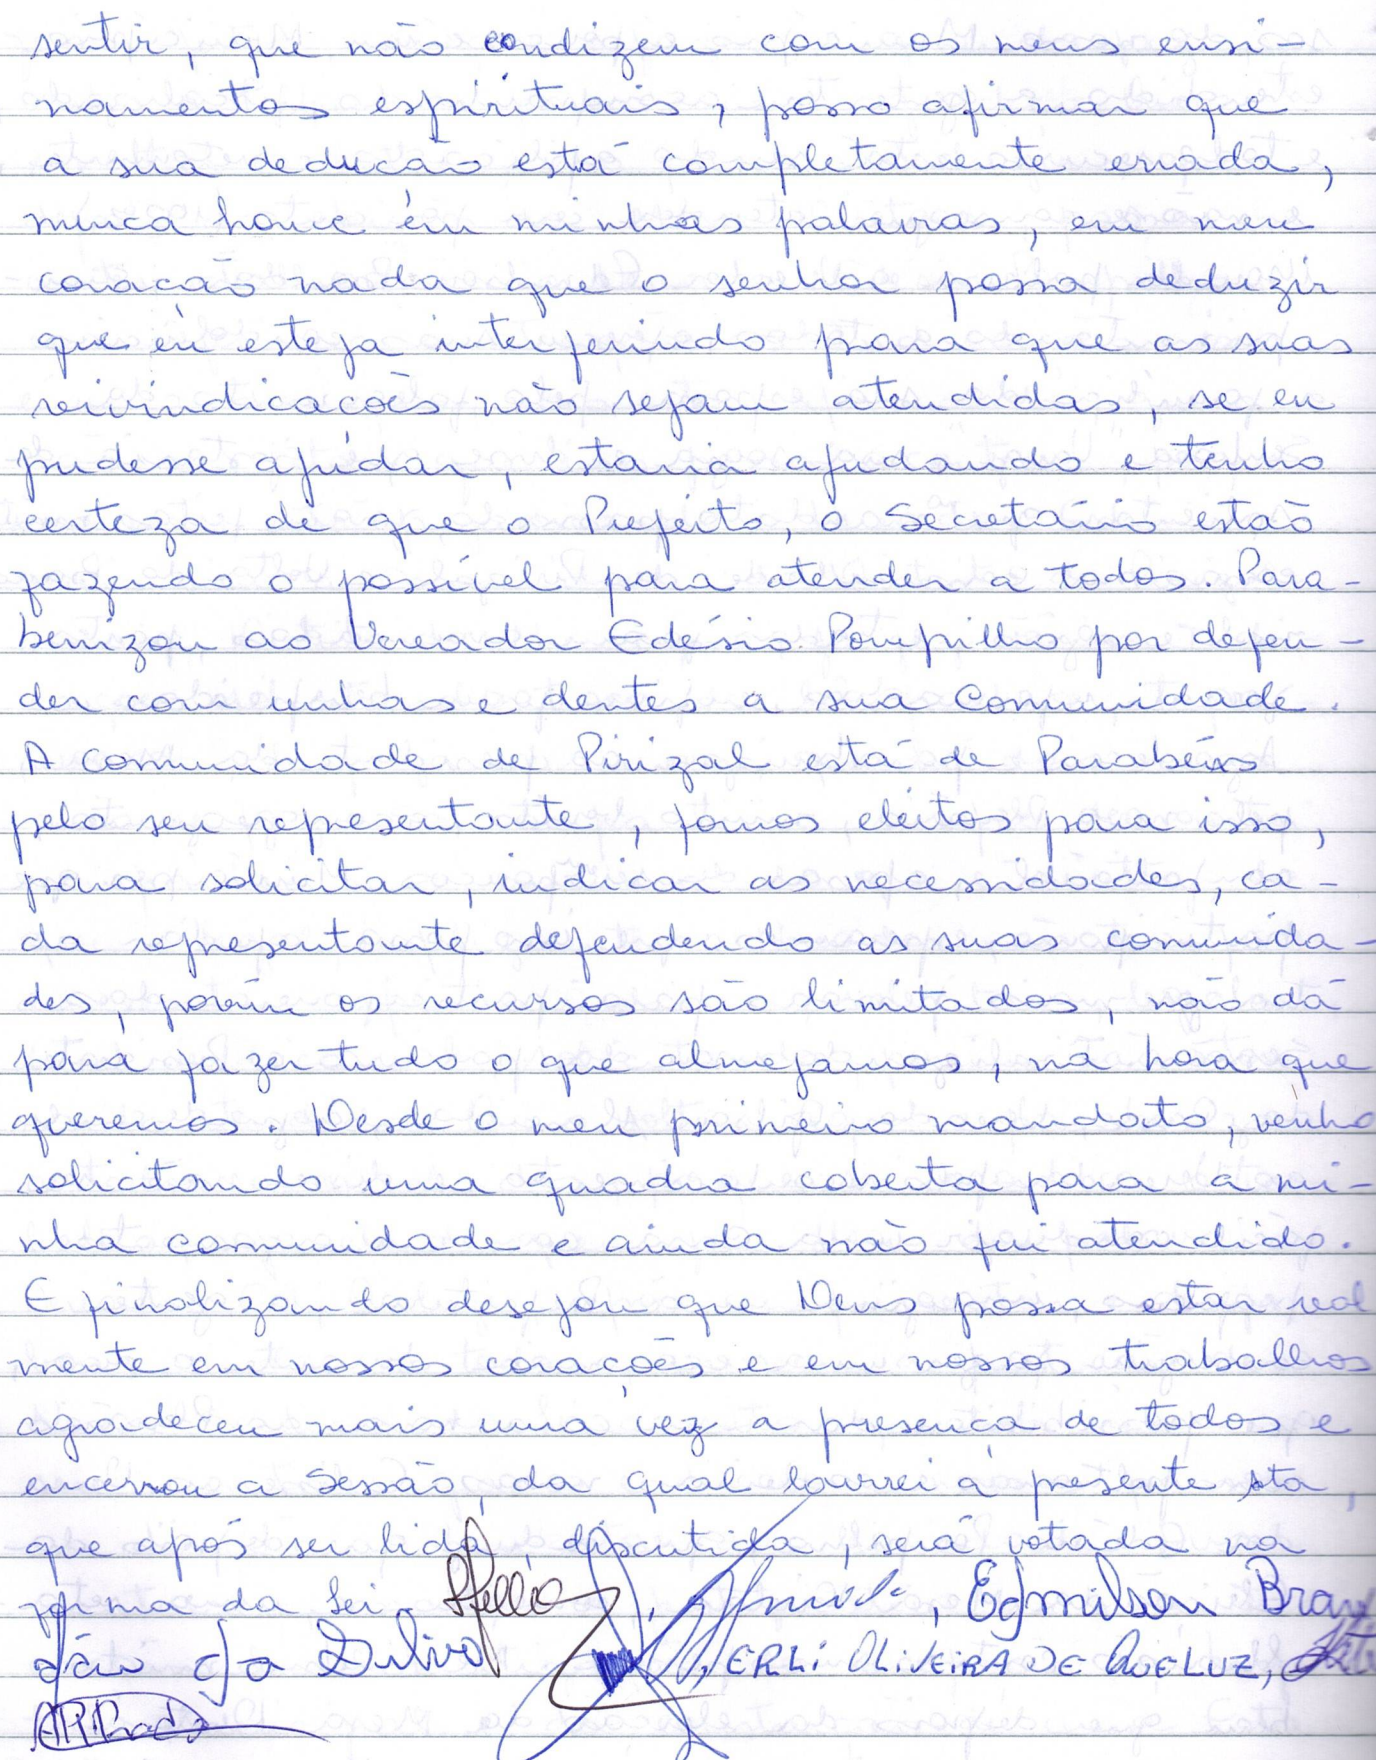 sentir, que não condizem com os meus ensi-
namentos espirituais, posso afirmar que
a sua dedução está completamente errada,
nunca houve em minhas palavras, em meu
coração nada que o senhor possa deduzir
que eu esteja interferindo para que as suas
reivindicações não sejam atendidas, se eu
pudesse ajudar, estaria ajudando e tenho
certeza de que o Prefeito, o Secretário estão
fazendo o possível para atender a todos. Para-
benizou ao Vereador Edésio Pompilho por defen-
der com unhas e dentes a sua Comunidade.
A comunidade de Pirizal está de Parabéns
pelo seu representante, fomos eleitos para isso,
para solicitar, indicar as necessidades, ca-
da representante defendendo as suas comunida-
des, porém os recursos são limitados, não dá
para fazer tudo o que almejamos, na hora que
queremos. Desde o meu primeiro mandato, venho
solicitando uma quadra coberta para a mi-
nha comunidade e ainda não fui atendido.
E finalizando desejou que Deus possa estar real
mente em nossos corações e em nossos trabalhos
agradeceu mais uma vez a presença de todos e
encerrou a Sessão, da qual lavrei a presente Ata,
que após ser lida, discutida, será votada na
forma da Lei.
Edmilson
da Silva
ERLI OLIVEIRA DE QUELUZ,